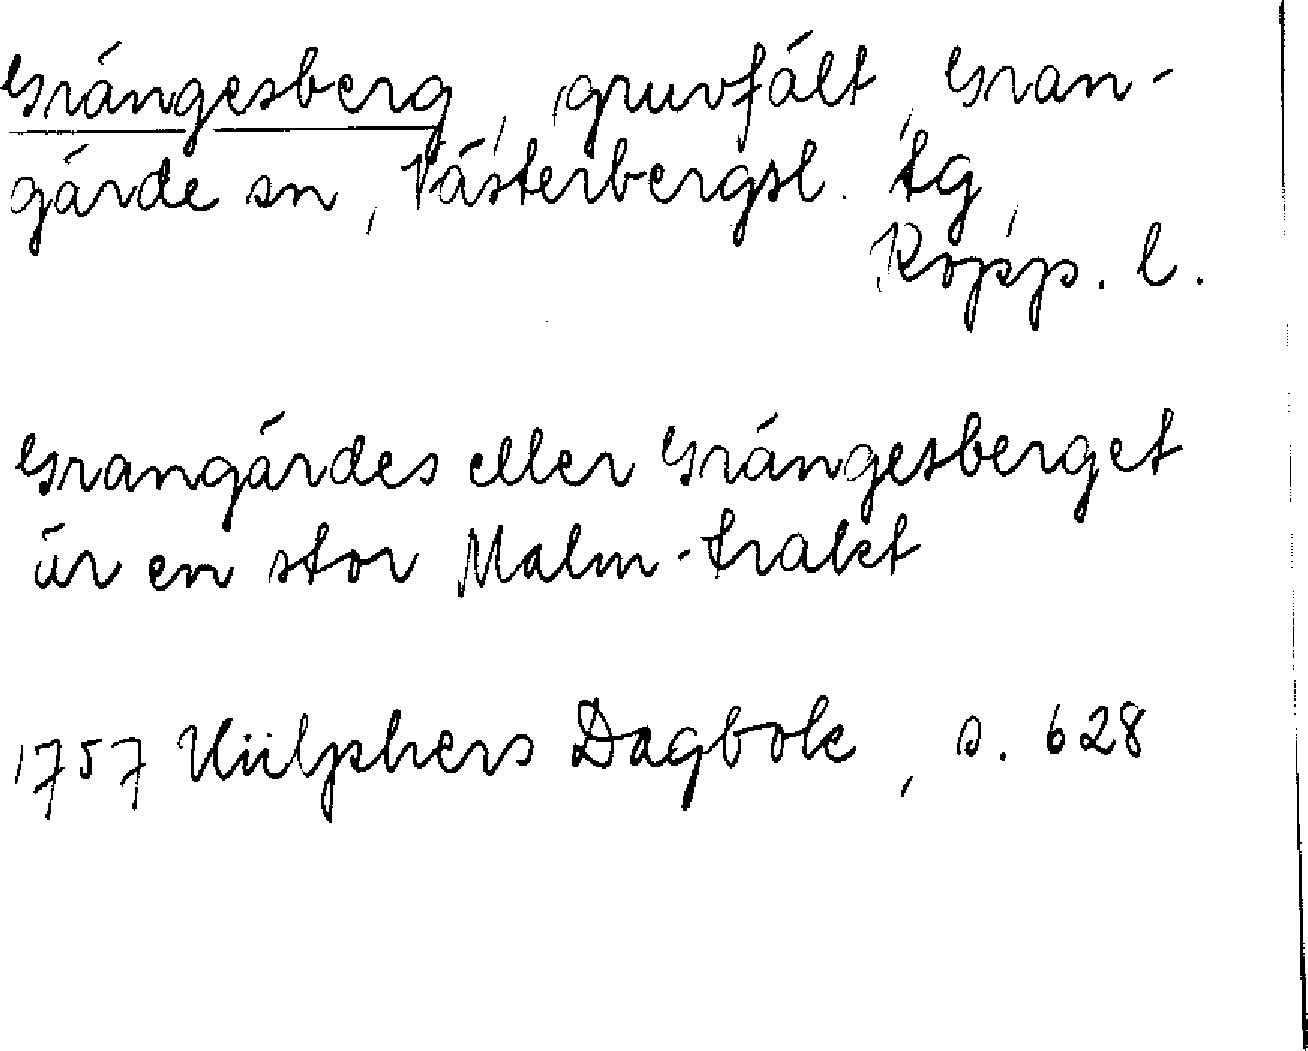 Grängesberg, gruvfält, Gran-
gärde sn, Västerbergsl. tg,
Kopp. l.
Grangärdes eller Grängesberget
är en stor Malm-trakt
1757 Hülphers Dagbok, s. 628